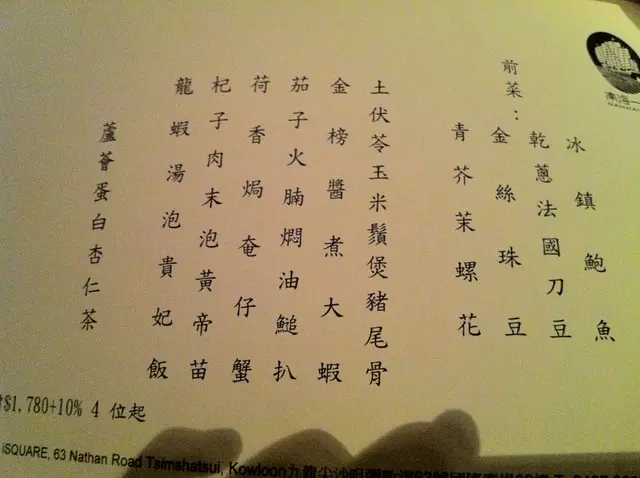 前菜：
冰鎮鮑魚
乾蔥法國刀豆
金絲珠豆
青芥茉螺花
土伏苓玉米鬚煲豬尾骨
金榜醬煮大蝦
茄子火腩燜油鎚扒
荷香焗奄仔蟹
杞子肉末泡黃帝苗
龍蝦湯泡貴妃飯
蘆薈蛋白杏仁茶
$1,780+10% 4 位起
iSQUARE, 63 Nathan Road Tsimshatsui, Kowloon九龍尖沙咀彌敦道63號國際廣場